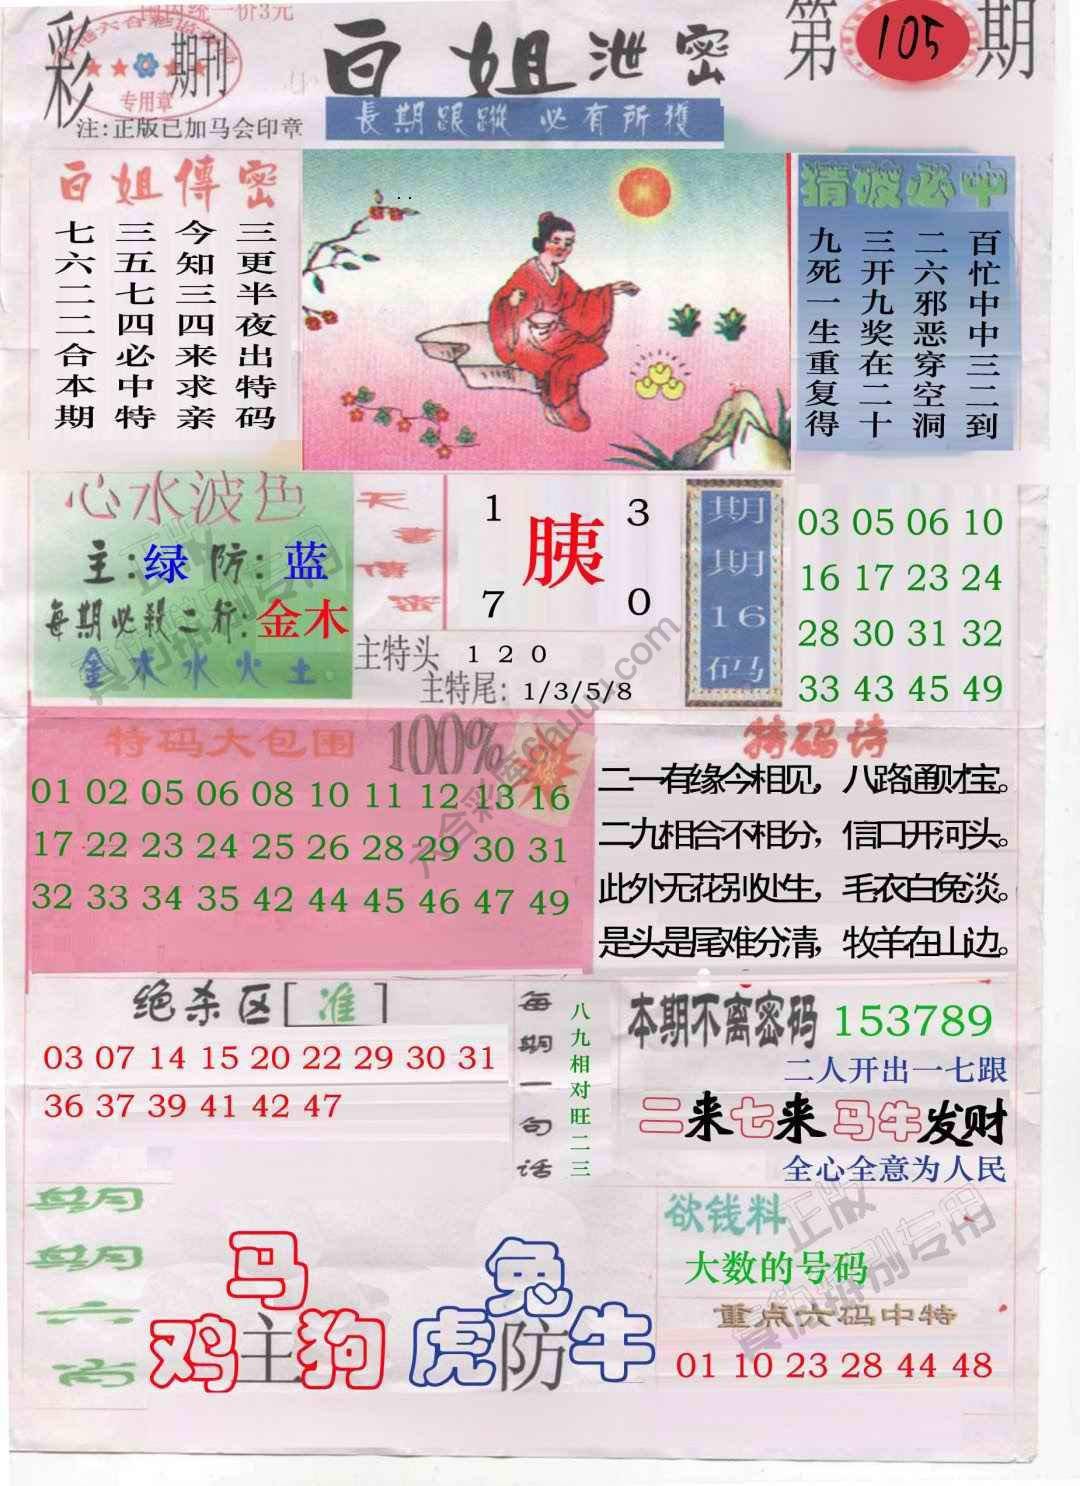 国内统一价3元
彩 期刊
专用章
注:正版已加马会印章
白姐泄密
長期跟蹤 必有所獲
第105期
白姐傳密
三更半夜出特码
今知三四来求亲
三五七四必中特
七六二二合本期
猜破必中
百忙中中三二到
二六邪恶穿空洞
三开九奖在二十
九死一生重复得
心水波色
主:绿 防:蓝
每期必殺二行:金木
金木水火土
天書傳密
1 3
胰
7 0
主特头 1 2 0
主特尾: 1/3/5/8
期期16码
03 05 06 10
16 17 23 24
28 30 31 32
33 43 45 49
特码大包围
100%
01 02 05 06 08 10 11 12 13 16
17 22 23 24 25 26 28 29 30 31
32 33 34 35 42 44 45 46 47 49
特码诗
二一有缘今相见，八路通财宝。
二九相合不相分，信口开河头。
此外无花别处生，毛衣白兔淡。
是头是尾难分清，牧羊在山边。
绝杀区[准]
03 07 14 15 20 22 29 30 31
36 37 39 41 42 47
每期一句话
八九相对旺二三
本期不离密码 153789
二人开出一七跟
二来七来 马牛发财
全心全意为人民
期期六肖
马
鸡主狗
兔
虎防牛
欲钱料
大数的号码
重点六码中特
01 10 23 28 44 48